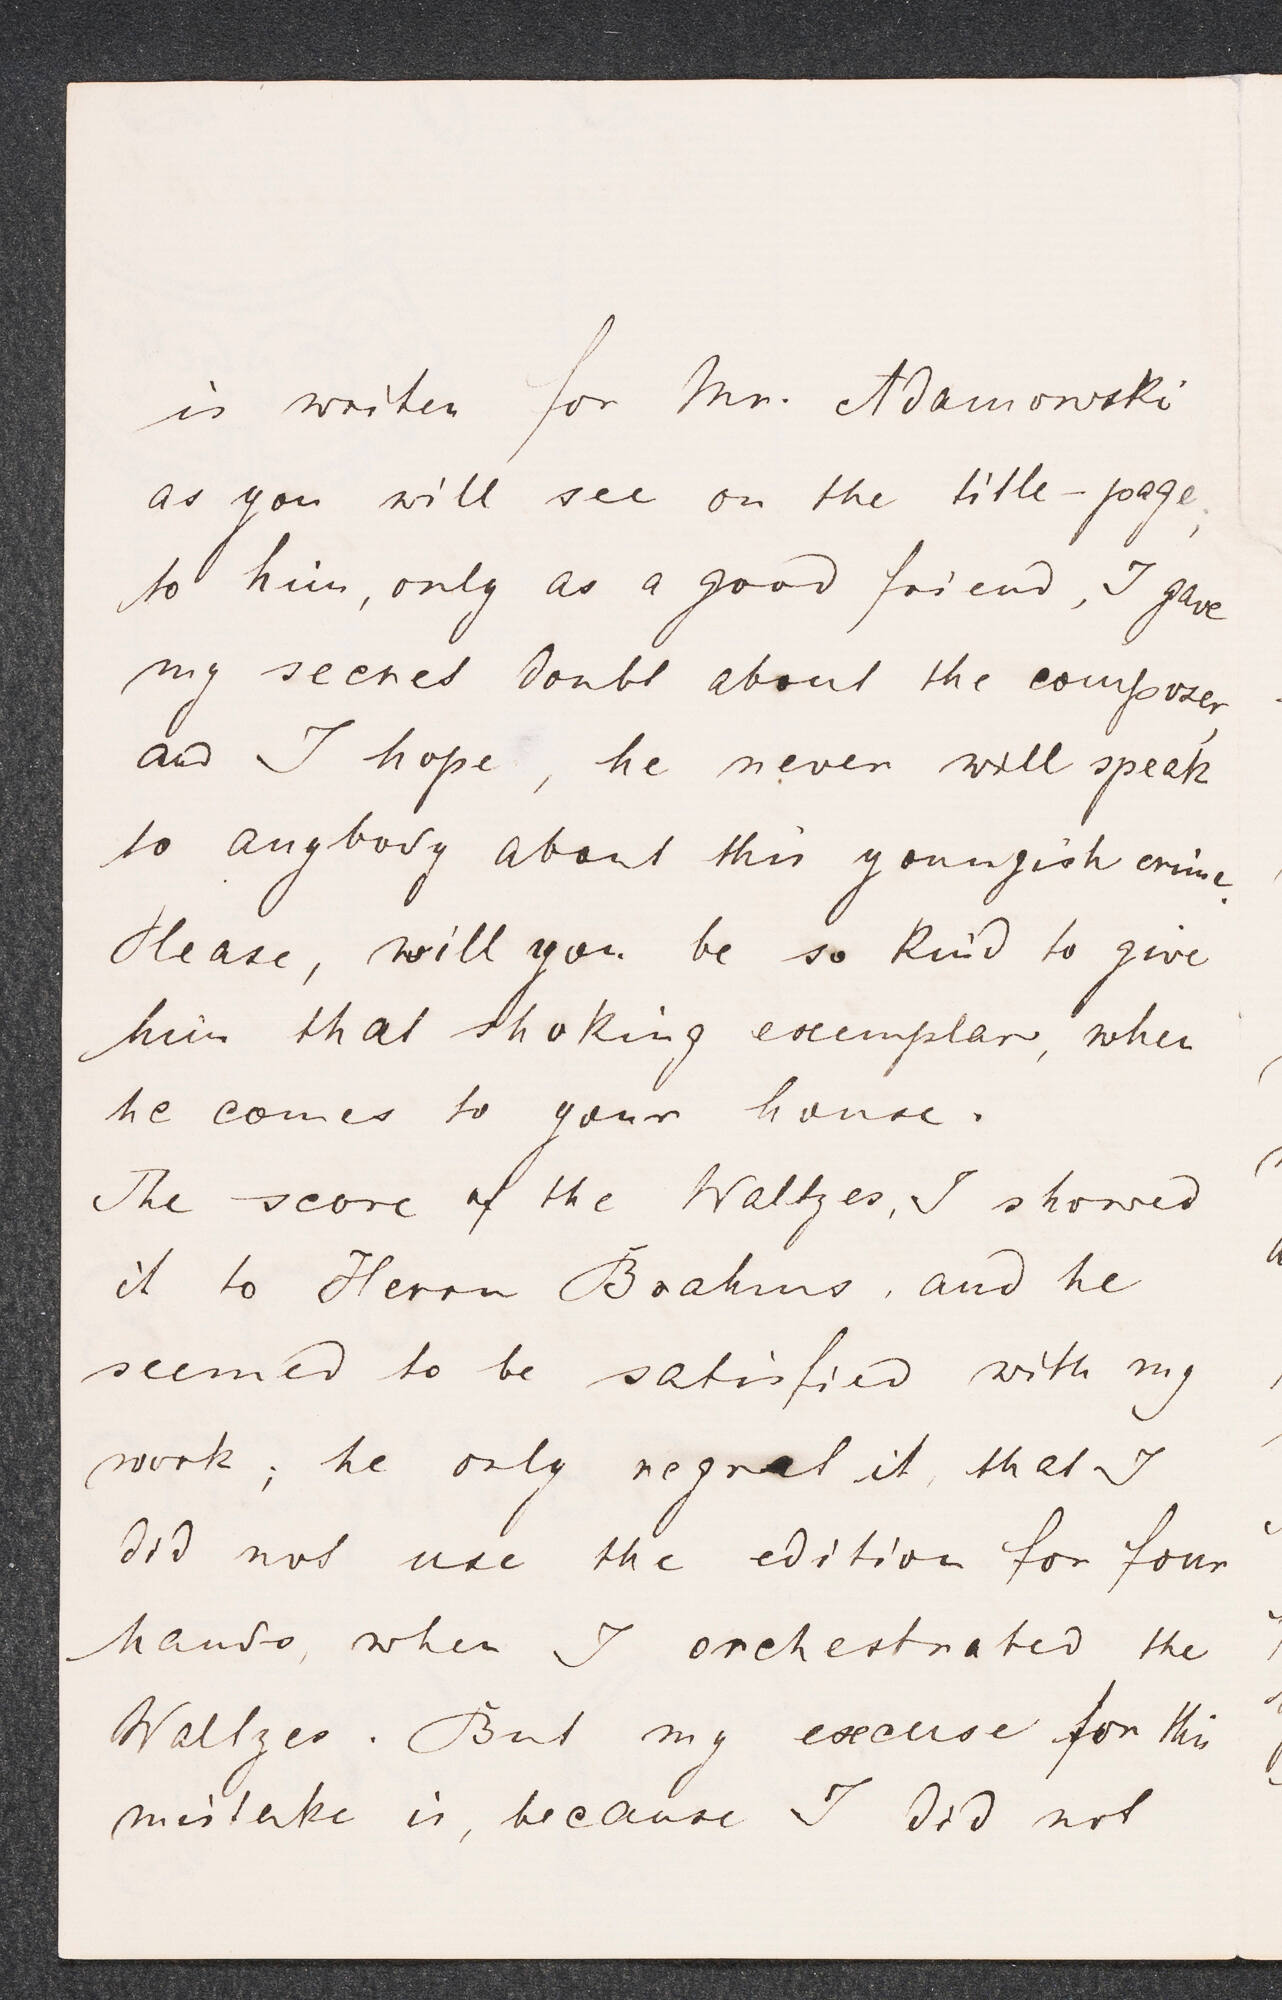 is writen for Mr. Adamowski
as you will see on the title-page;
to him, only as a good friend, I gave
my secret doubt about the composer,
and I hope, he never will speak
to anybody about this youngish crime.
Please, will you be so kind to give
him that shoking exemplar, when
he comes to your house.
The score of the Waltzes, I showed
it to Herrn Brahms, and he
seemed to be satisfied with my
work; he only regret it, that I
did not use the edition for four
hands, when I orchestrated the
Waltzes. But my excuse for this
mistake is, because I did not